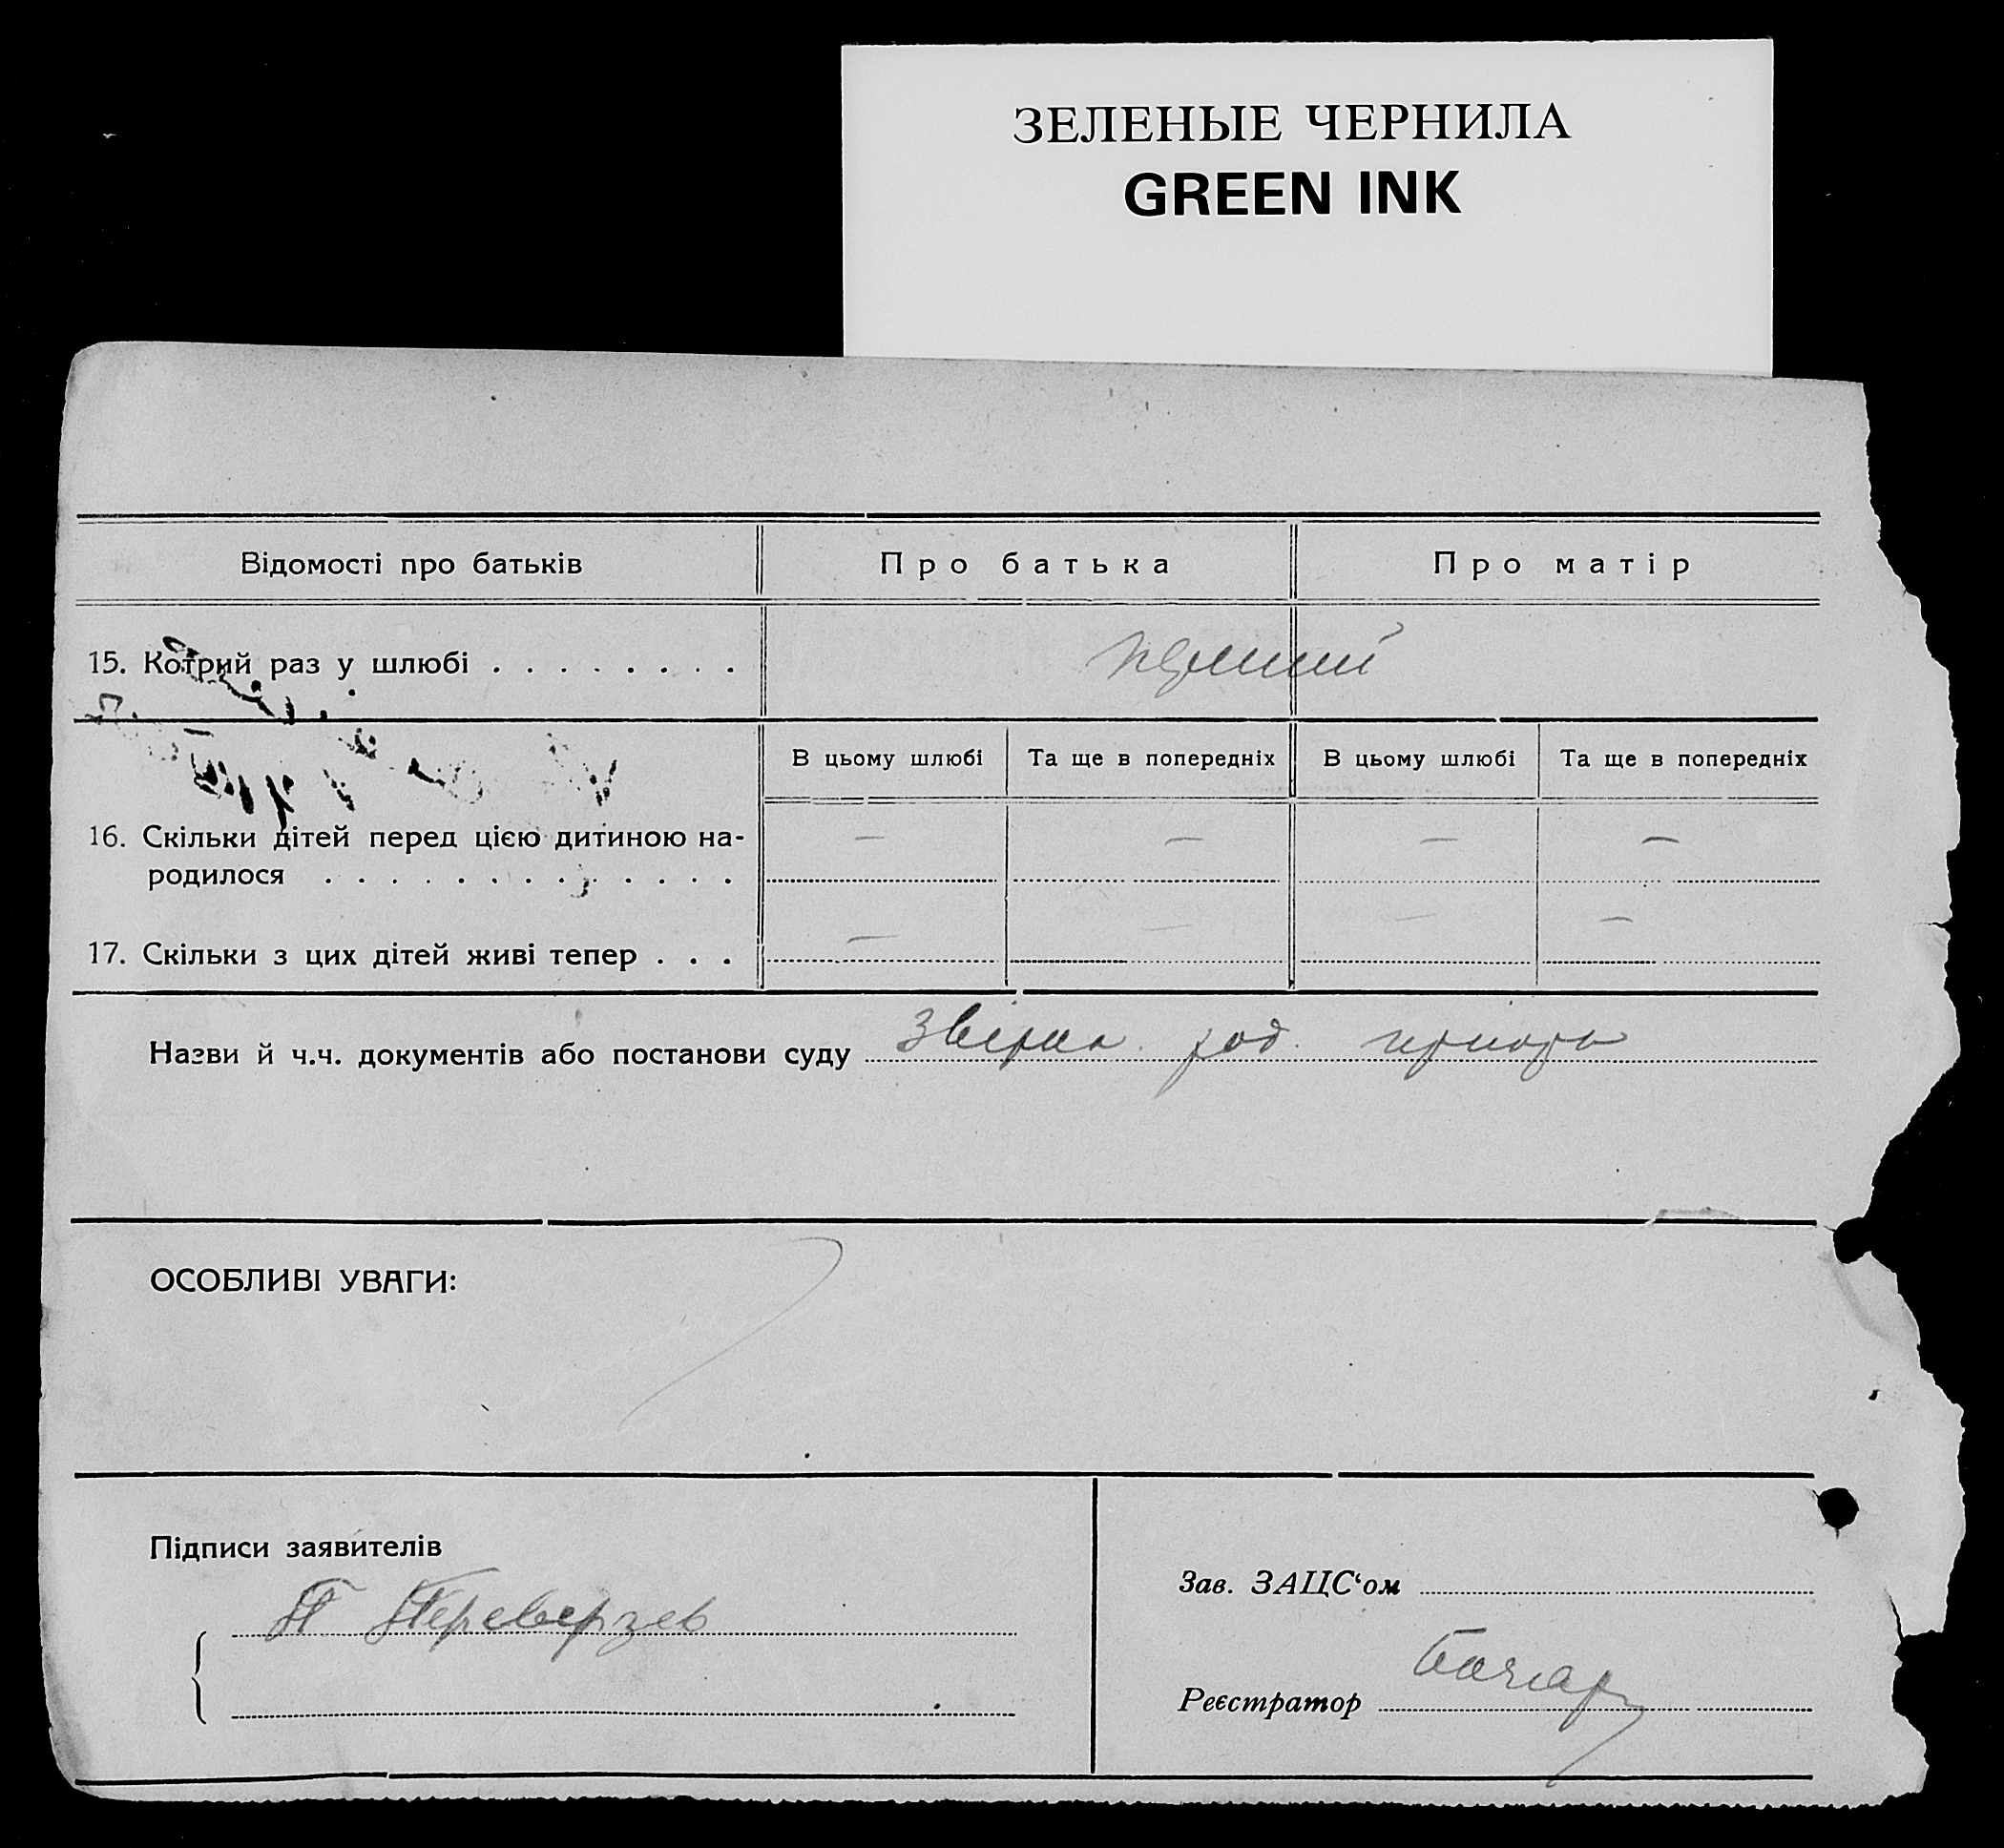 ЗЕЛЕНЫЕ ЧЕРНИЛА
GREEN INK
Відомості про батьків Про батька Про матір
15. Котрий раз у шлюбі . . . . . . . .
В цьому шлюбі Та ще в попередніх В цьому шлюбі Та ще в попередніх
16. Скільки дітей перед цією дитиною на- — — — —
родилося . . . . . . . . . . . . . .
17. Скільки з цих дітей живі тепер . . . — — — —
Назви й ч.ч. документів або постанови суду
ОСОБЛИВІ УВАГИ:
Підписи заявителів
П Переверзев
Зав. ЗАЦС‘ом
Реєстратор